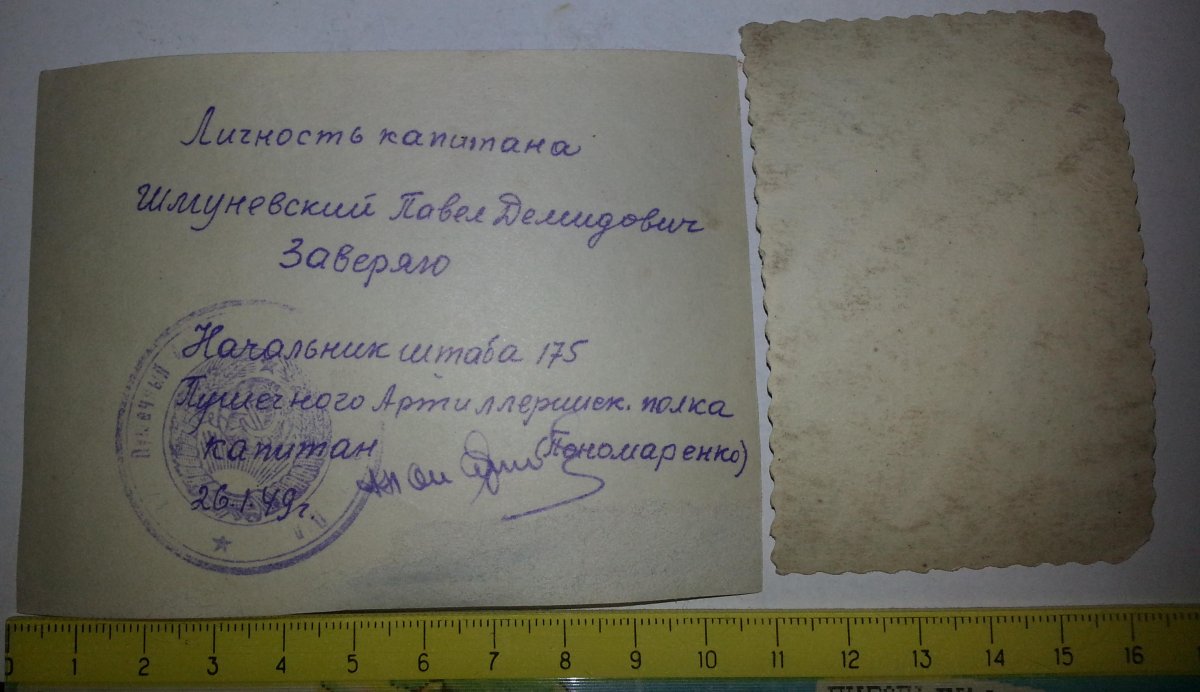 Личность капитана
Шмуневский Павел Демидович
Заверяю
Начальник штаба 175
Пушечного Артиллерийск. полка
капитан (Пономаренко)
26.1.49г.
0 1 2 3 4 5 6 7 8 9 10 11 12 13 14 15 16